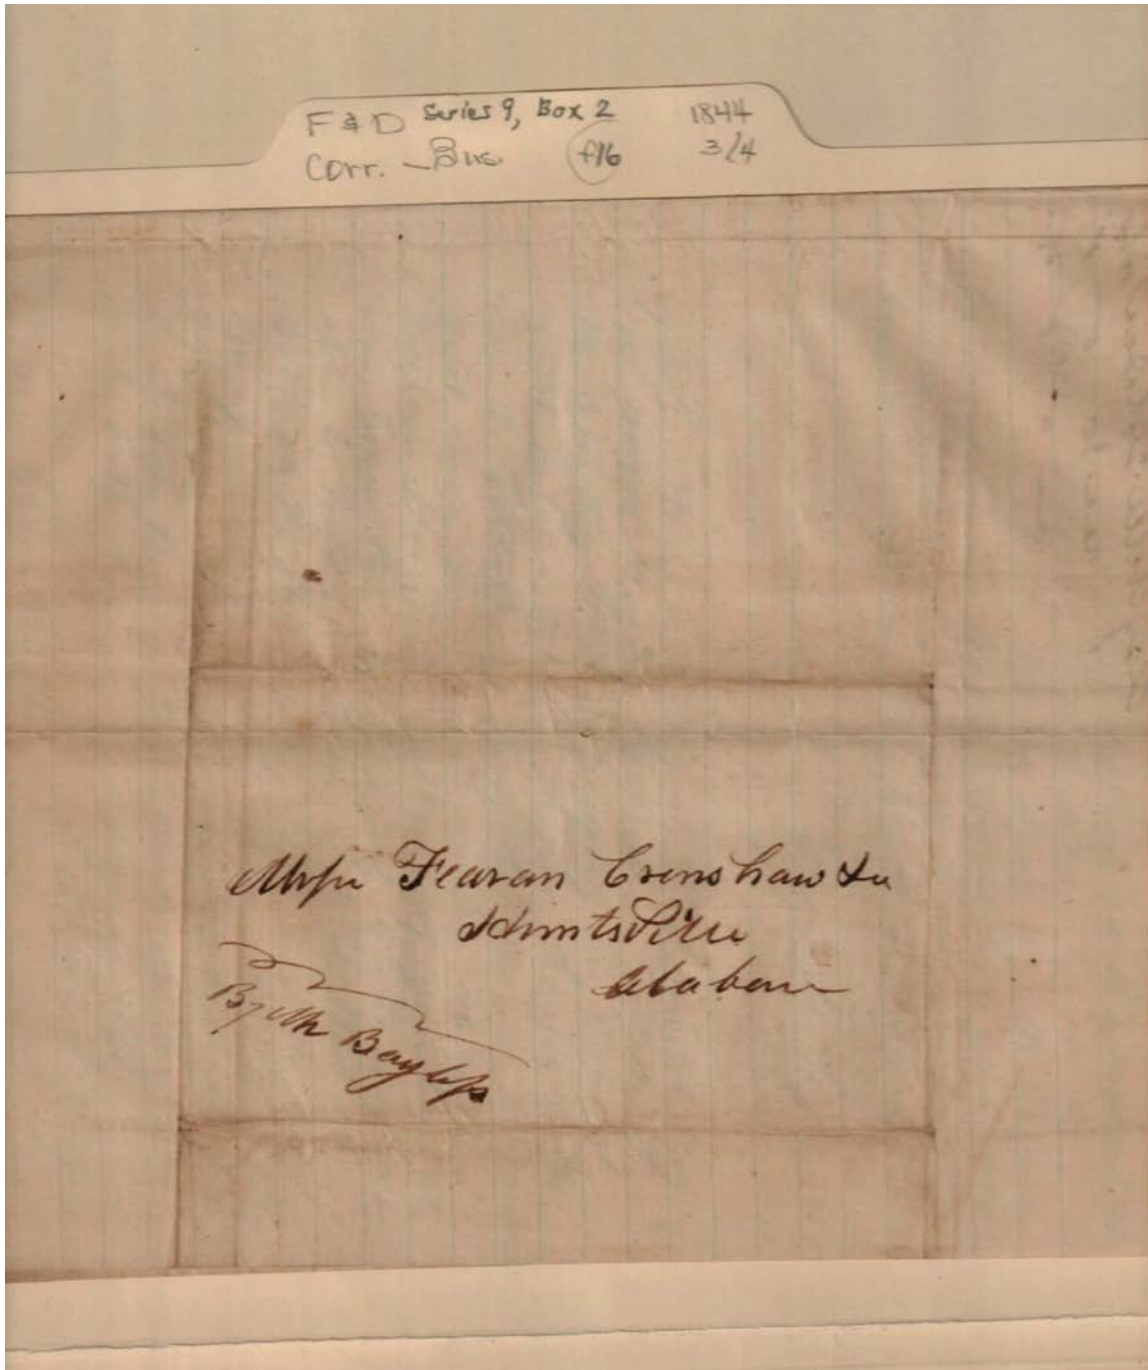 F & D Series 9, Box 2 1844
Corr. - Bus. f16 3/4
Fearan Crenshaw &
Huntsville
Alabama
By Mr Bayless